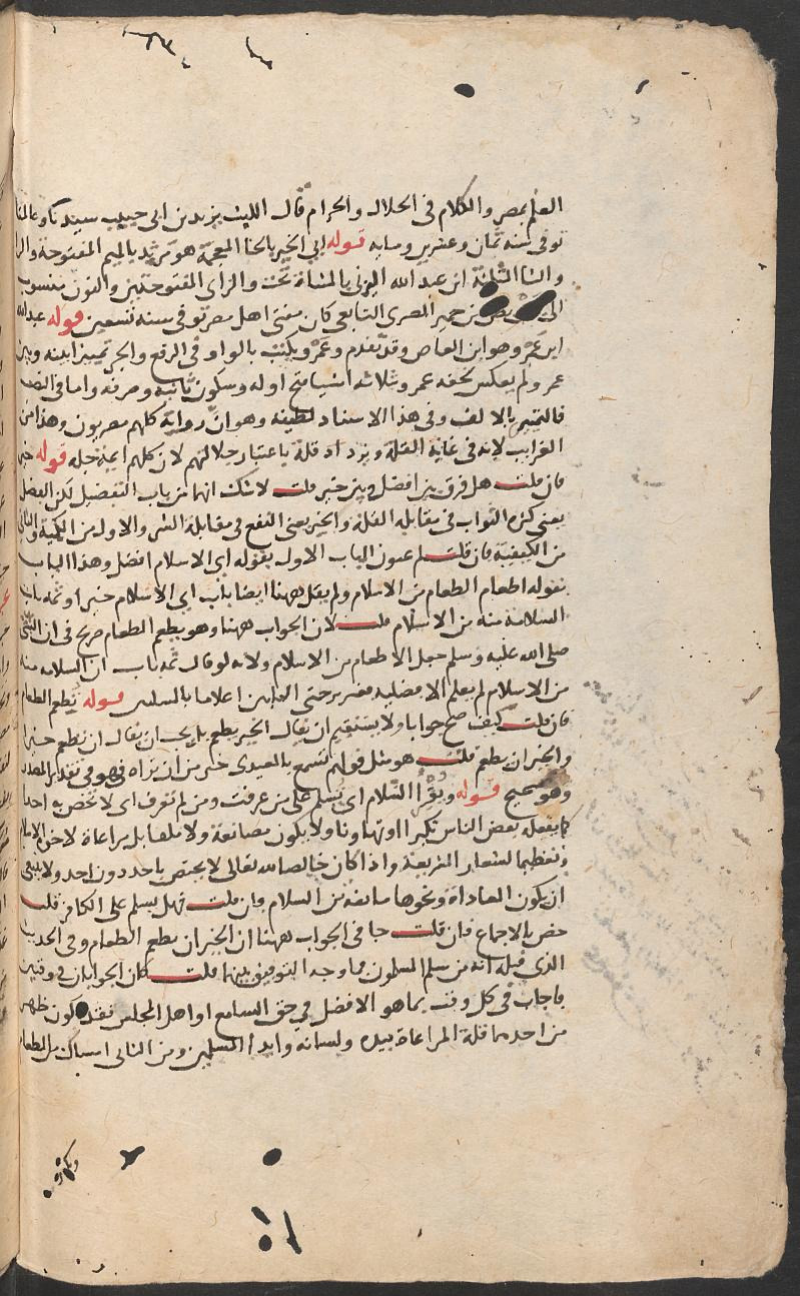 العلم بمصر والكلام في الحلال والحرام قال الليث يزيد بن ابي حبيب سيدنا وعالمنا
توفي سنه ثمان وعشرين ومايه قوله ابي الخير بالخا المعجمة هو مرثد بالميم المفتوحة والرا
والثا المثلثة ابن عبد الله اليزني بالمثناة تحت والزاي المفتوحتين والنون منسوب
الى بن حمير المصري التابعي كان مفتي اهل مصر توفي سنه تسعين قوله عبدالله
ابن عمرو وهو ابن العاص وقد تقدم وعمرو يكتب بالواو في الرفع والجر تمييزا بينه وبين
عمر ولم يعكس لخفه عمرو بثلاثه اشيا فتح اوله وسكون ثانيه وصرفه واما في النصب
فالتميز بالالف وفي هذا الاسناد لطيفه وهو ان رواته كلهم مصريون وهذا من
الغرايب لانه في غاية القلة ويزداد قلة باعتبار جلالتهم لان كلهم ايمة جله قوله خير
فان قلت هل فرق بين افضل وبين خير قلت لاشك انهما من باب التفضيل لكن الفضل
يعني كثره الثواب في مقابله القلة والخير يعني النفع في مقابلة الشر والاول من الكمية والثاني
من الكيفية فان قلت لم عنون الباب الاول بقوله اي الاسلام افضل وهذا الباب
بقوله اطعام الطعام من الاسلام ولم يقل ههنا ايضا باب اي الاسلام خير او ثمه باب
السلامة منه من الاسلام قلت لان الجواب ههنا وهو يطعم الطعام صريح في ان النبي
صلى الله عليه وسلم جعل الاطعام من الاسلام ولانه لو قال ثمه باب ان السلامه منه
من الاسلام لم يعلم الافضليه قوله تطعم الطعام
فان قلت كيف صح جوابا ولا يستقيم ان يقال الخير يطعم بل يجب ان يقال ان تطعم خبرا
والخبر ان يطعم قلت هو مثل قولهم تسمع بالمعيدي خير من ان تراه فهو في تقدير المصدر
وهو صحيح قوله وتقرأ السلام اي تسلم على من عرفت ومن لم تعرف اي لا تخص به احدا
كما يفعله بعض الناس تكبرا او تهاونا ولا يكون مصانعة ولا ملقا بل مراعاة لاخوة الاسلام
وتعظيما لشعار الشريعة واذا كان خالصا لله تعالى لا يختص باحد دون احد ولا ينبغي
ان يكون المعاداة ونحوها مانعة من السلام وان قلت فهل يسلم على الكافر قلت
خص بالاجماع فان قلت جا في الجواب ههنا ان الخير ان يطعم الطعام وفي الحديث
الذي قبله انه من سلم المسلمون فما وجه التوفيق بينهما قلت كان الجوابان في وقتين
فاجاب في كل وقت بما هو الافضل في حق السامع او اهل المجلس فقد يكون ظهر
من احدهما قلة المراعاة بيده ولسانه وايذا المسلمين ومن الثاني امساك من الطعام